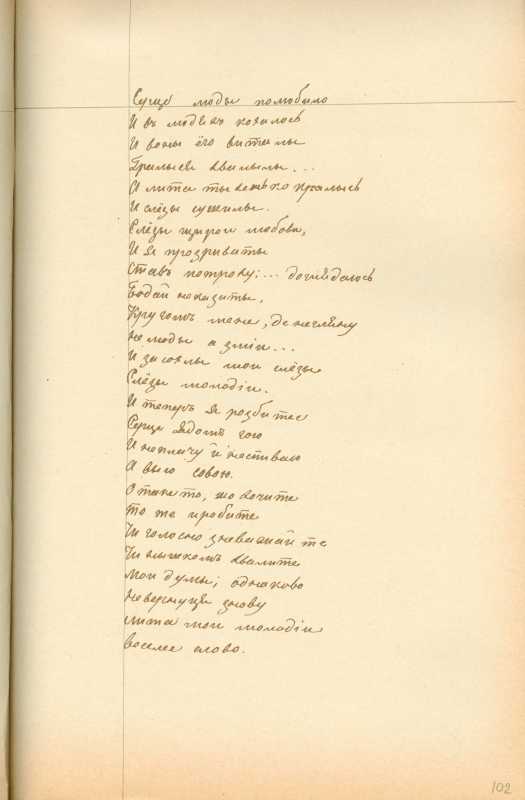 Серце люды полюбило
И въ людяхъ кохалось
И воны его виталы
Гралыся хвалылы...
А лита тыхенько кралысь
И слёзы сушилы.
Слёзы щирои любови,
И я прозриваты
Ставъ потроху;... доглядаюсь
Бодай неказаты.
Кругомъ мене, де негляну
Не люды а зміи...
И засохлы мои слёзы
Слёзы молодіи.
И теперь я розбитее
Серце ядомъ гою
И неплачу й неспиваю
А выю совою.
Отакето, що хочите
То те и робите
Чи голосно зневажайте
Чи нышкомъ хвалите
Мои думы; однаково
Невернуця знову
лита мои молодіи
веселее слово.
102